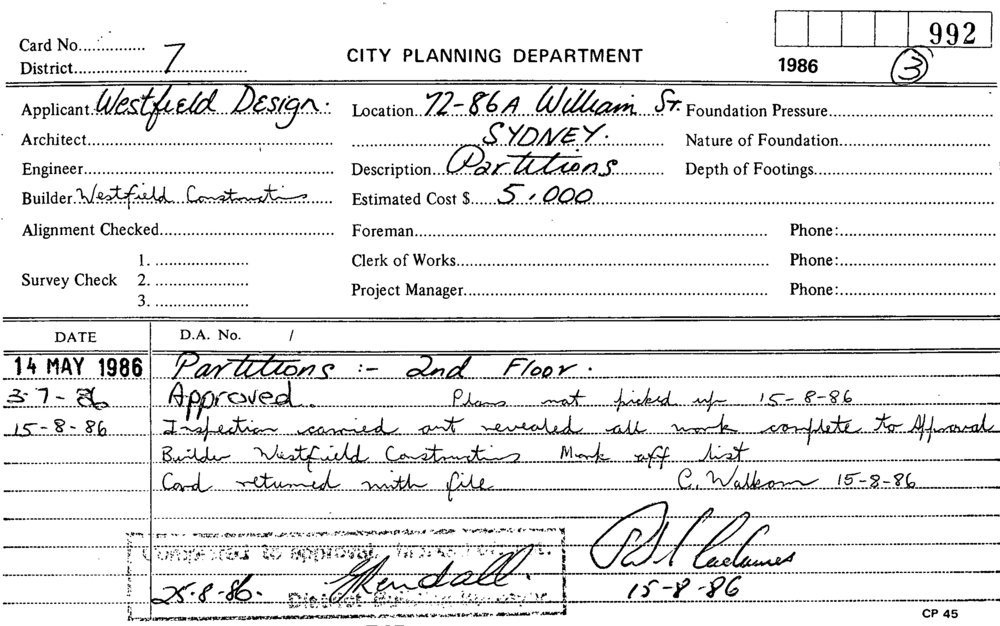 992
Card No.
District 7
CITY PLANNING DEPARTMENT
1986 3
Applicant Westfield Design.
Location 72-86A William St.
Foundation Pressure
Architect
SYDNEY.
Nature of Foundation
Engineer
Description Partitions
Depth of Footings
Builder Westfield Constructions
Estimated Cost $ 5,000
Alignment Checked
Foreman
Phone:
Survey Check
1.
2.
3.
Clerk of Works
Phone:
Project Manager
Phone:
DATE
D.A. No. /
14 MAY 1986 Partitions :- 2nd Floor.
3-7-86 Approved. Plans not picked up 15-8-86
15-8-86 Inspection carried out revealed all work complete to Approval
Builder Westfield Constructions Mark off list
Card returned with file C. Walkom 15-8-86
Completed to approval,
25-8-86. Kendall.
District Building Surveyor
15-8-86
CP 45